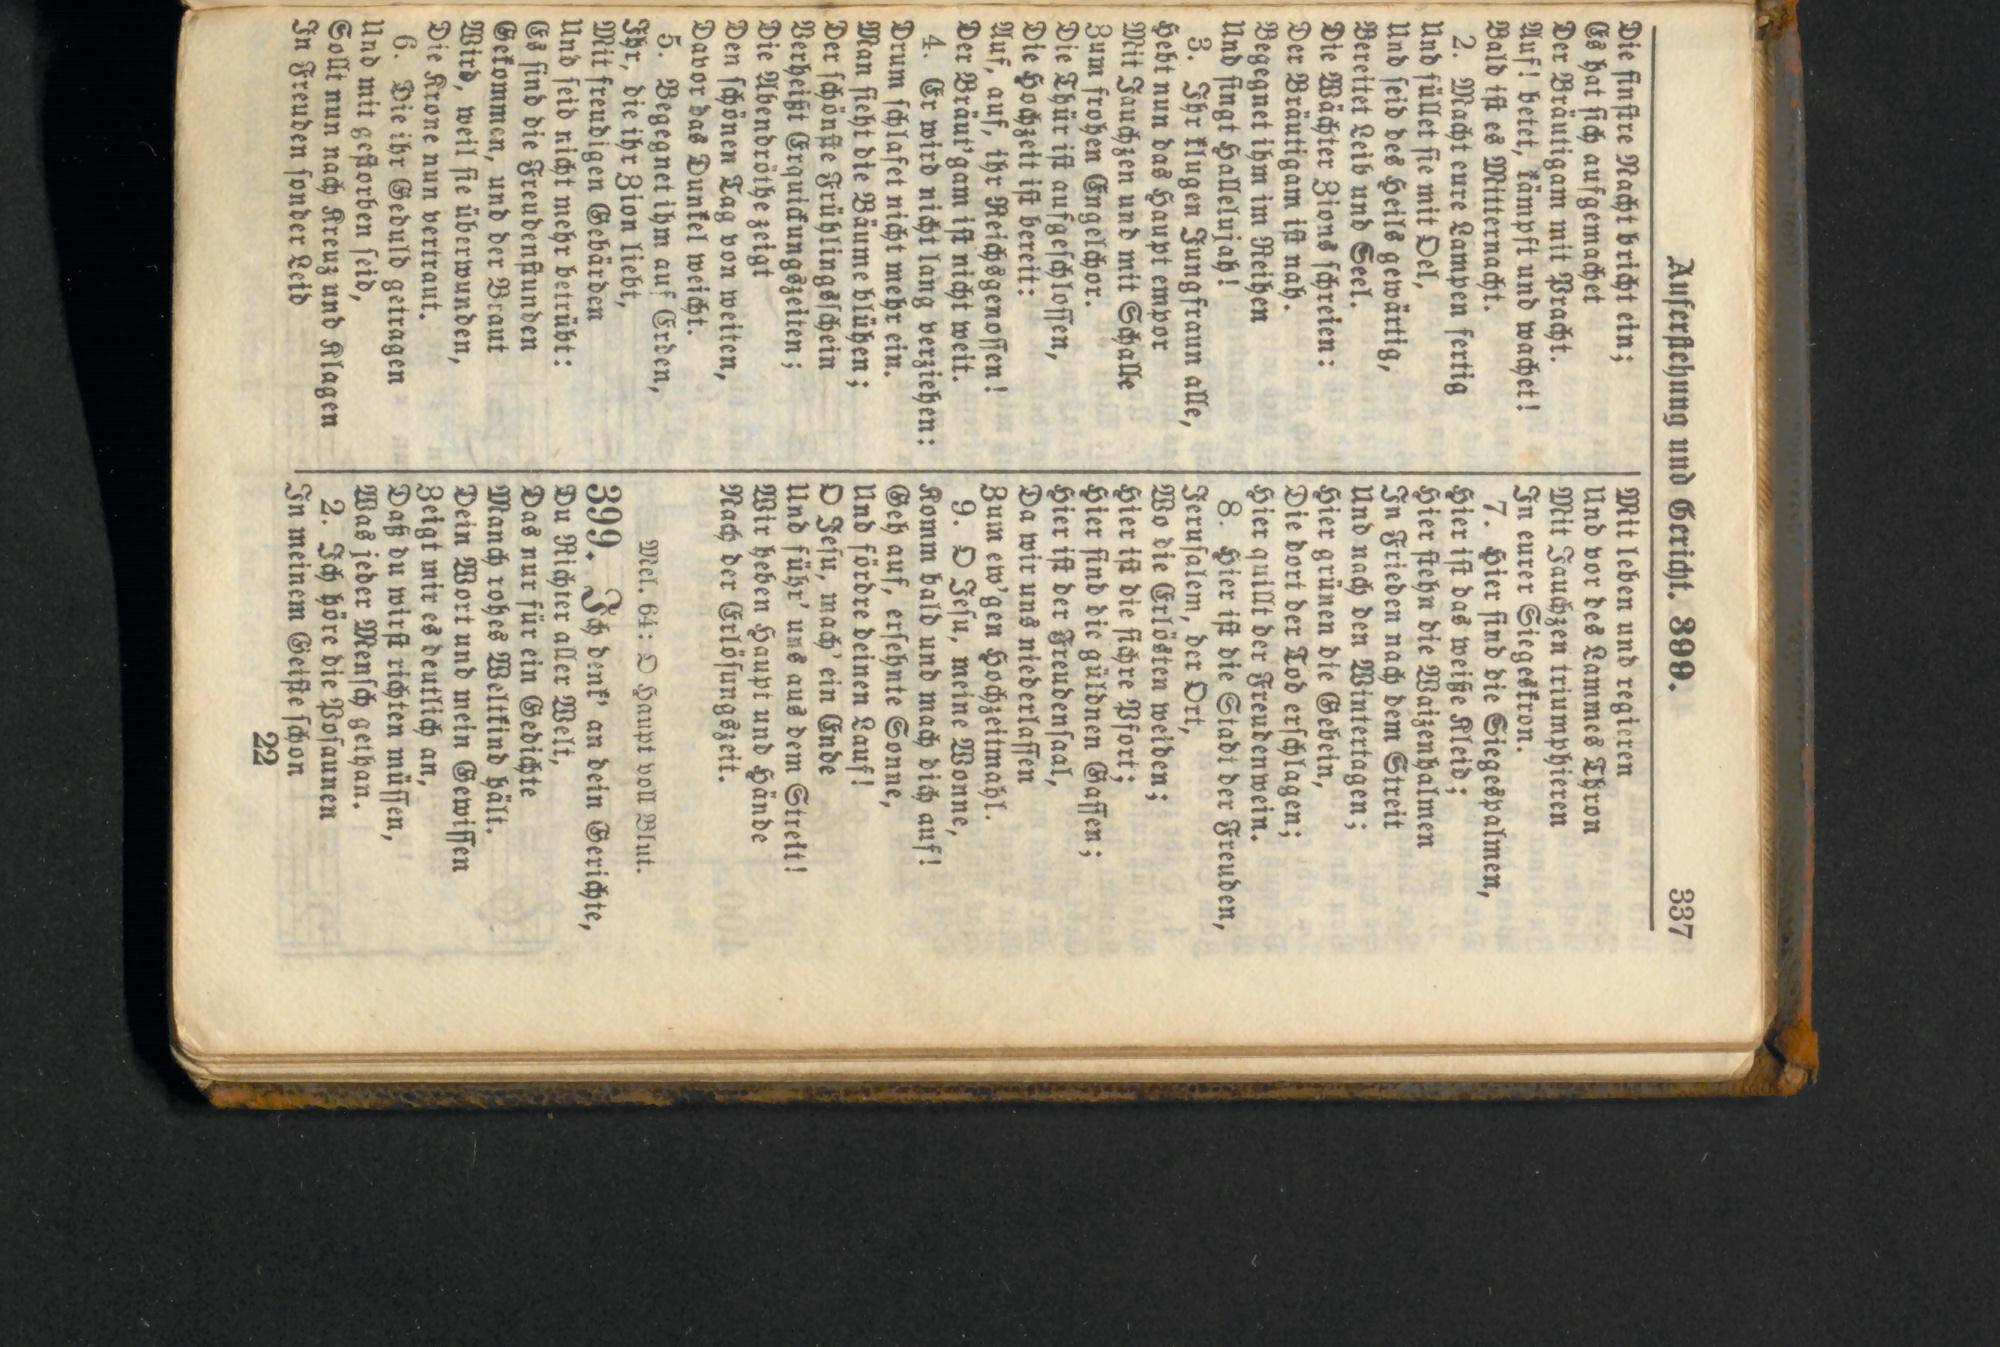 Auferstehung und Gericht. 399. 337
Die finstre Nacht bricht ein;
Es hat sich aufgemachet
Der Bräutigam mit Pracht.
Auf! betet, kämpft und wachet!
Bald ist es Mitternacht.
2. Macht eure Lampen fertig
Und füllet sie mit Oel,
Und seid des Heils gewärtig,
Bereitet Leib und Seel.
Die Wächter Zions schreien:
Der Bräutigam ist nah.
Begegnet ihm im Reihen
Und singt Hallelujah!
3. Ihr klugen Jungfraun alle,
Hebt nun das Haupt empor
Mit Jauchzen und mit Schalle
Zum frohen Engelchor.
Die Thür ist aufgeschlossen,
Die Hochzeit ist bereit:
Auf, auf, ihr Reichsgenossen!
Der Bräut'gam ist nicht weit.
4. Er wird nicht lang verziehen:
Drum schlafet nicht mehr ein.
Man sieht die Bäume blühen;
Der schönste Frühlingsschein
Verheißt Erquickungszeiten;
Die Abendröthe zeigt
Den schönen Tag von weiten,
Davor das Dunkel weicht.
5. Begegnet ihm auf Erden,
Ihr, die ihr Zion liebt,
Mit freudigen Gebärden
Und seid nicht mehr betrübt:
Es sind die Freudenstunden
Gekommen, und der Braut
Wird, weil sie überwunden,
Die Krone nun vertraut.
6. Die ihr Geduld getragen
Und mit gestorben seid,
Sollt nun nach Kreuz und Klagen
In Freuden sonder Leid
Mit leben und regieren
Und vor des Lammes Thron
Mit Jauchzen triumphieren
In eurer Siegeskron.
7. Hier sind die Siegespalmen,
Hier ist das weiße Kleid;
Hier stehn die Waizenhalmen
In Frieden nach dem Streit
Und nach den Wintertagen;
Hier grünen die Gebein,
Die dort der Tod erschlagen;
Hier quillt der Freudenwein.
8. Hier ist die Stadt der Freuden,
Jerusalem, der Ort,
Wo die Erlösten weiden;
Hier ist die sichre Pfort;
Hier sind die güldnen Gassen;
Hier ist der Freudensaal,
Da wir uns niederlassen
Zum ew'gen Hochzeitmahl.
9. O Jesu, meine Wonne,
Komm bald und mach dich auf!
Geh auf, ersehnte Sonne,
Und fördre deinen Lauf!
O Jesu, mach' ein Ende
Und führ' uns aus dem Streit!
Wir heben Haupt und Hände
Nach der Erlösungszeit.
Mel. 64: O Haupt voll Blut.
399. Ich denk' an dein Gerichte,
Du Richter aller Welt,
Das nur für ein Gedichte
Manch rohes Weltkind hält.
Dein Wort und mein Gewissen
Zeigt mir es deutlich an,
Daß du wirst richten müssen,
Was jeder Mensch gethan.
2. Ich höre die Posaunen
In meinem Geiste schon
22